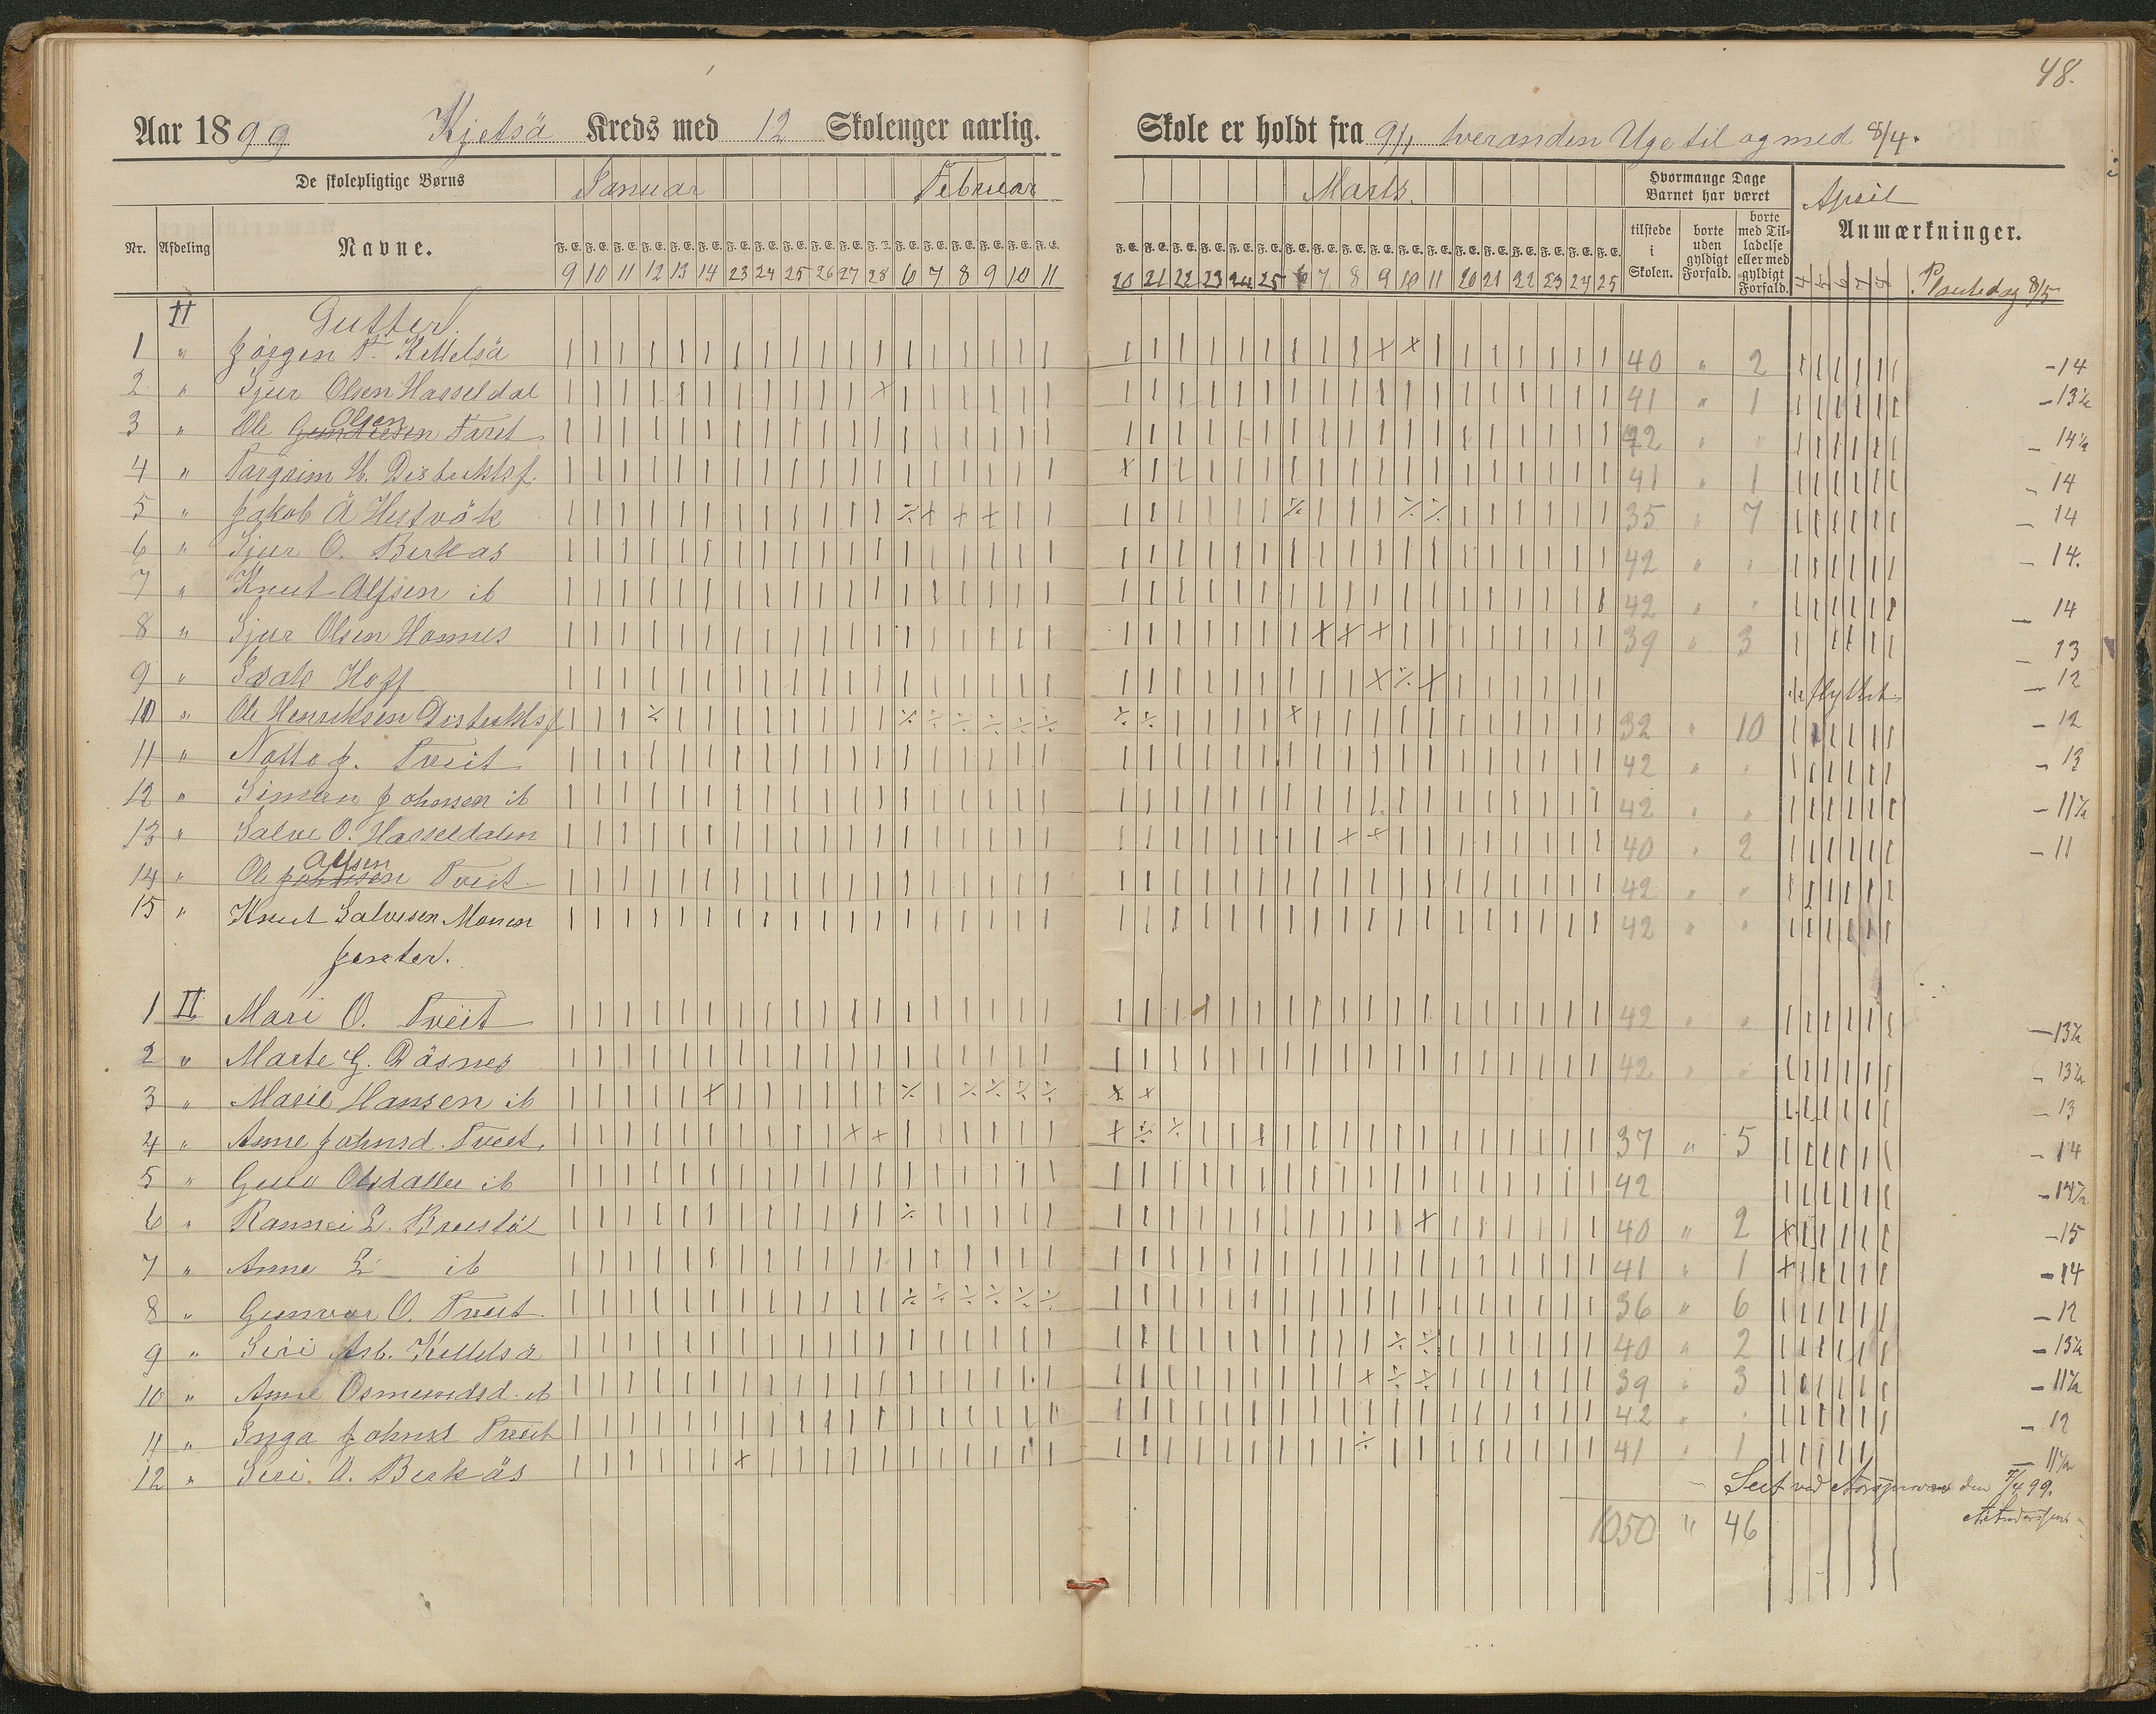 48.
Aar 1899 Kjetså Kreds med 12 Skoleuger aarlig. Skole er holdt fra 9/1 hveranden Uge til og med 8/4.
De skolepligtige Børns Januar Februar Marts. Hvormange Dage Barnet har været April
Nr. Afdeling Navne. tilstede i Skolen. borte uden gyldigt Forfald. borte med Tilladelse eller med gyldigt Forfald. Anmærkninger.
F. E. F. E. F. E. F. E. F. E. F. E. F. E. F. E. F. E. F. E. F. E. F. E. F. E. F. E. F. E. F. E. F. E. F. E.
9 10 11 12 13 14 23 24 25 26 27 28 6 7 8 9 10 11 20 21 22 23 24 25 6 7 8 9 10 11 20 21 22 23 24 25 Plantedag 8/5
II Gutter.
1 " Jörgen T. Kettelså 40 " 2 -14
2 " Sjur Olsen Hasseldal 41 " 1 -13½
3 " Ole Olsen Faret 42 " " -14½
4 " Targrim H. Distriktsf. 41 " 1 -14
5 " Jakob Å Hestvåk 35 " 7 -14
6 " Sjur O. Berkås 42 " " -14.
7 " Knut Alfsen ib 42 " " -14
8 " Sjur Olsen Homnes 39 " 3 -13
9 " Isak Hoff flyttet -12
10 " Ole Henriksen Distriktsf 32 " 10 -12
11 " Notto J. Tveit 42 " " -13
12 " Siman Johnsen ib 42 " " -11½
13 " Salve O. Hasseldalen 40 " 2 -11
14 " Ole Johnsen Alfsen Tveit 42 " "
15 " Knut Salvesen Monen 42 " "
Jenter.
1 II Mari O. Tveit 42 " " -13½
2 " Marte G. Dåsnes 42 " " -13½
3 " Marie Hansen ib -13
4 " Anne Johnsd. Tveit. 37 " 5 -14
5 " Guro Olsdatter ib 42 -14½
6 " Rannei L. Breistöl 40 " 2 -15
7 " Anne L ib 41 " 1 -14
8 " Gunvor O. Tveit. 36 " 6 -12
9 " Siri Asb. Kettelså 40 " 2 -13½
10 " Anne Osmundsd. ib 39 " 3 -11½
11 " Inga Johnsd Tveit 42 " " -12
12 " Siri O. Berkås 41 " 1 -11½
Seet ved den 7/4 99.
1050 " 46